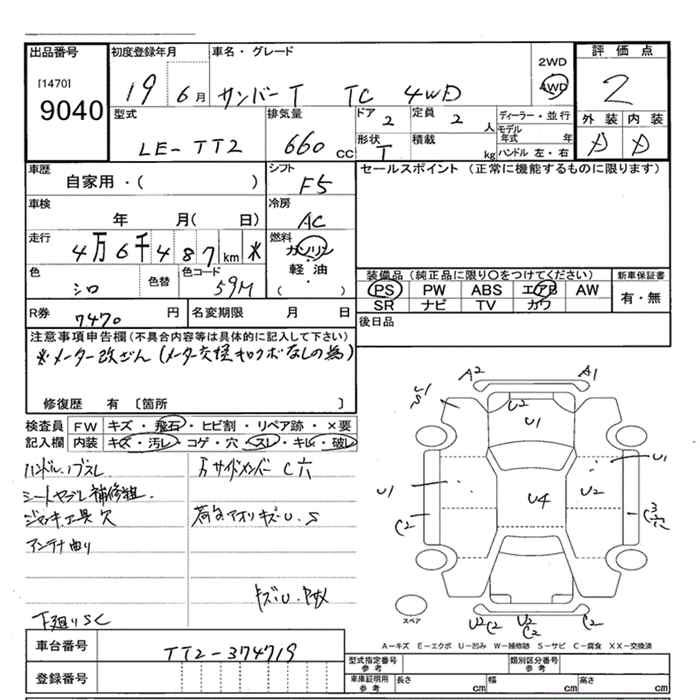 出品番号 初度登録年月 車名・グレード 評価点
[1470]
9040
19 6月 サンバーT TC 4WD
2WD
4WD
2
型式 LE-TT2
排気量 660 cc
ドア 2
定員 2 人
形状 T
積載 kg
ディーラー・並行
モデル年式 年
ハンドル 左・右
外装 内装
D D
車歴 自家用・( )
シフト F5
セールスポイント (正常に機能するものに限ります)
車検 年 月( 日)
冷房 AC
走行 4万6千487km ※
燃料 ガソリン
軽油
・( )
色 シロ 色替 色コード 59M
装備品 (純正品に限り○をつけてください) 新車保証書
PS PW ABS エアB AW 有・無
SR ナビ TV カワ
R券 7470 円 名変期限 月 日
後日品
注意事項申告欄 (不具合内容等は具体的に記入して下さい)
※メーター改ざん (メーター交換キロクボなしの為)
修復歴 有 〔箇所 〕
検査員 FW キズ・飛石・ヒビ割・リペア跡・×要
記入欄 内装 キズ・汚レ・コゲ・穴・スレ・キレ・破レ
ハンドル.ノブスレ
シートヤブレ補修粗.
ジャッキ工具欠
アンテナ曲り
下廻りSC
サイドメンバー C穴
荷台アオリキズU.S
キズ.U.
A2 A1
U2
U1
U1 U4 U2 U1
C2
U2 C2 U2 C2 C2
スペア
A-キズ E-エクボ U-凹み W-補修跡 S-サビ C-腐食 XX-交換済
車台番号 TT2-374719
登録番号
型式指定番号 参考 類別区分番号 参考
車庫証明用 参考 長さ cm 幅 cm 高さ cm